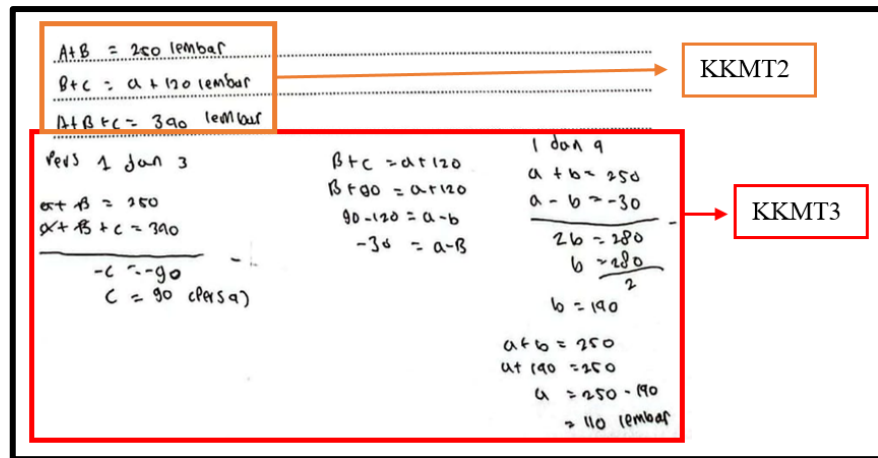 A+B = 250 lembar
B+C = a + 120 lembar
A+B+C = 340 lembar
KKMT2
Pers 1 dan 3
a+B = 250
a+B+C = 340
-
-C = -90
C = 90 (Pers 4)
B+C = a+120
B+90 = a+120
90-120 = a-b
-30 = a-B
1 dan 4
a + b = 250
a - b = -30
-
2b = 280
b = 280
2
b = 140
a+b = 250
a+140 = 250
a = 250-140
= 110 lembar
KKMT3